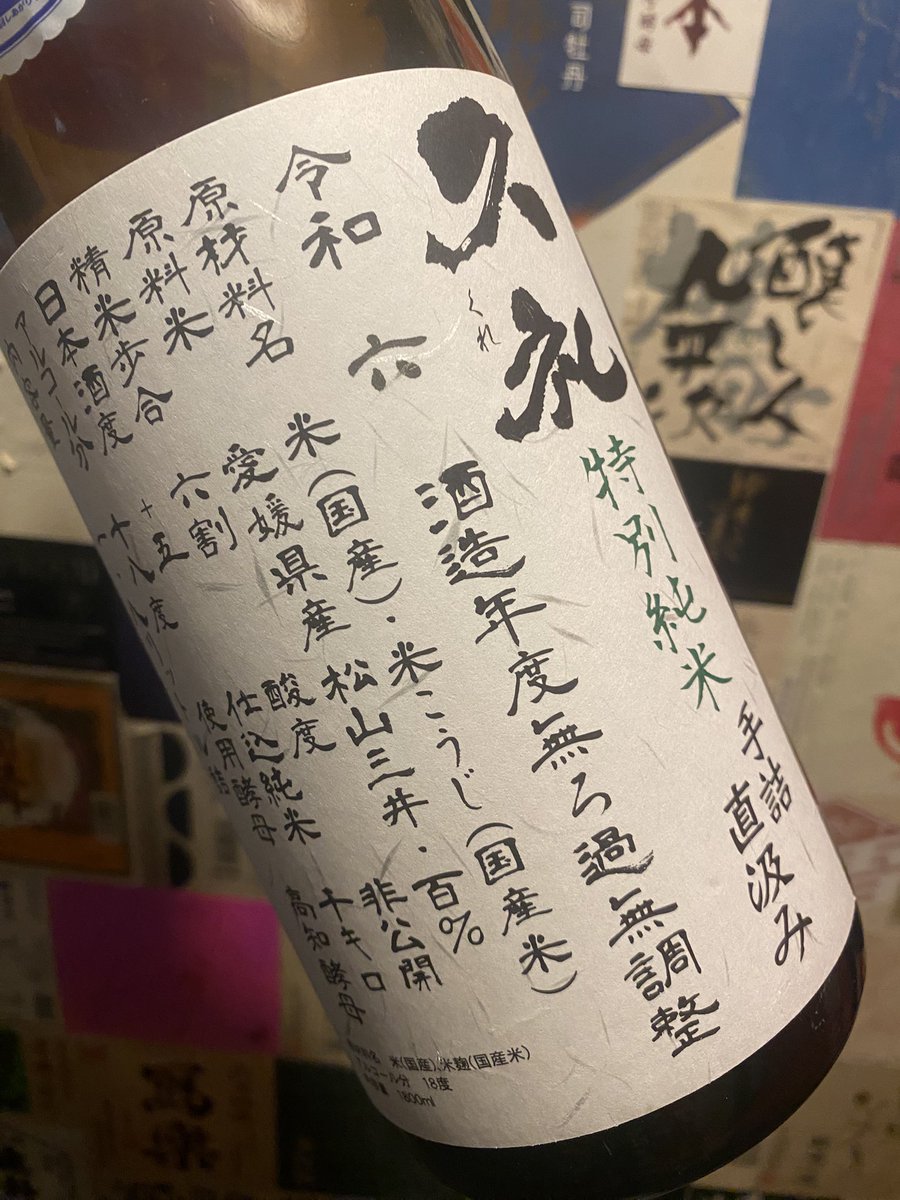 久礼
くれ
特別純米
手詰
直汲み
令和
六
酒造年度無ろ過無調整
原材料名
米(国産)・米こうじ(国産米)
原料米
愛媛県産
松山三井・百%
精米歩合
六割
酸度
非公開
日本酒度
+五
仕込純米
千キロ
アルコール分
十八度
使用酵母
高知酵母
米(国産)、米麹(国産米)
18度
1800ml
司牡丹
醸し人
九平次